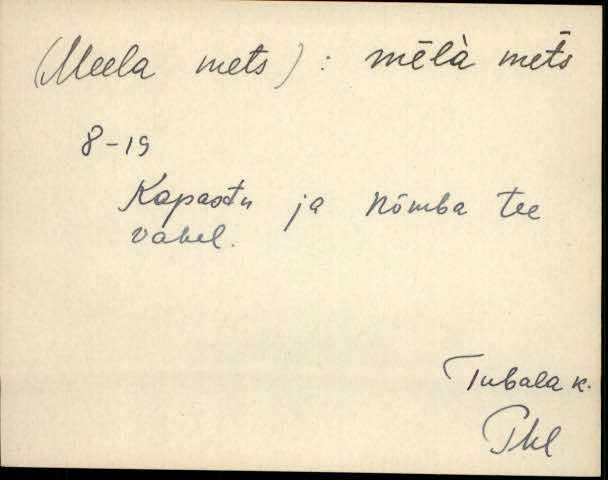 (Meela mets) : mēlà met̄s
8-19
Kapastu ja Nõmba tee
vahel.
Tubala k.
Phl